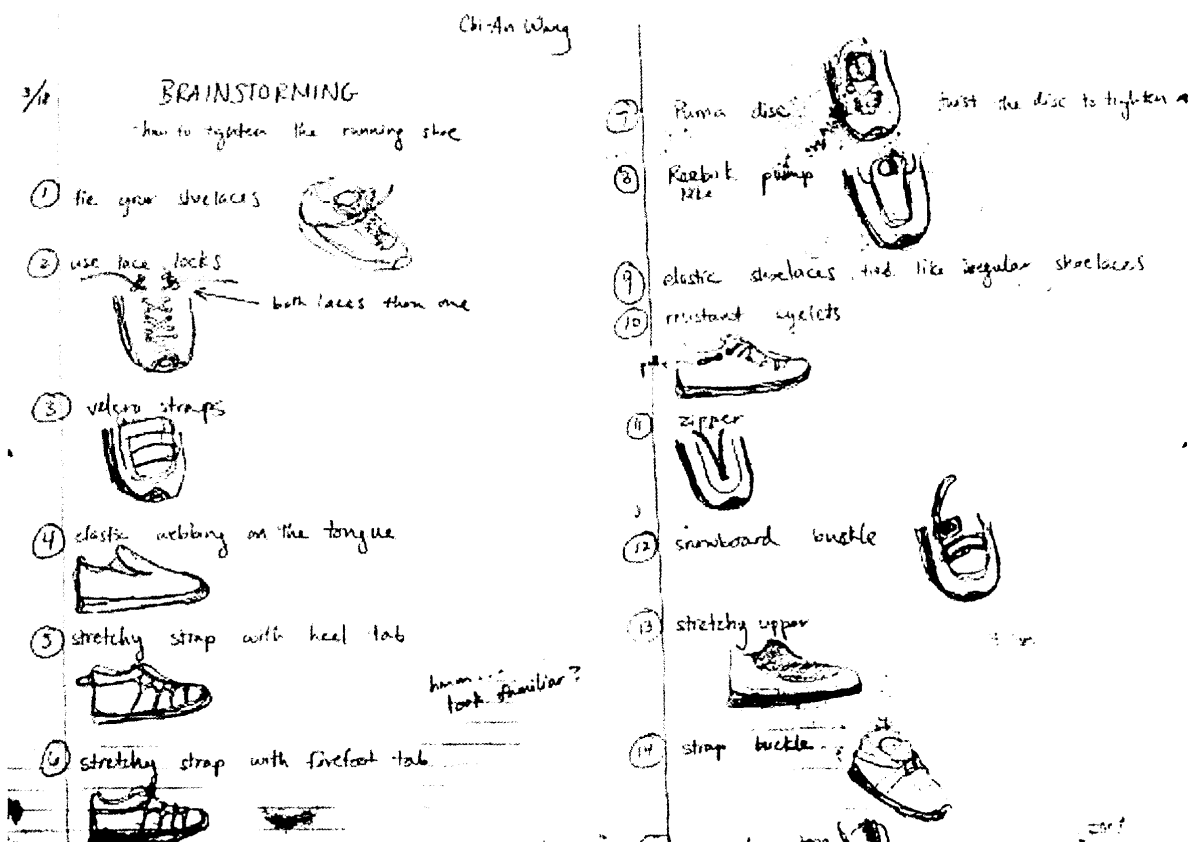 Chi-An Wang
3/18
BRAINSTORMING
how to tighten the running shoe
1 tie your shoelaces
2 use lace locks
both laces than one
3 velcro straps
4 elastic webbing on the tongue
5 stretchy strap with heel tab
hmm... look familiar?
6 stretchy strap with forefoot tab
7 Puma disc
twist the disc to tighten
8 Reebok pump
Nike
9 elastic shoelaces tied like regular shoelaces
10 resistant eyelets
pull
11 zipper
12 snowboard buckle
13 stretchy upper
14 strap buckle